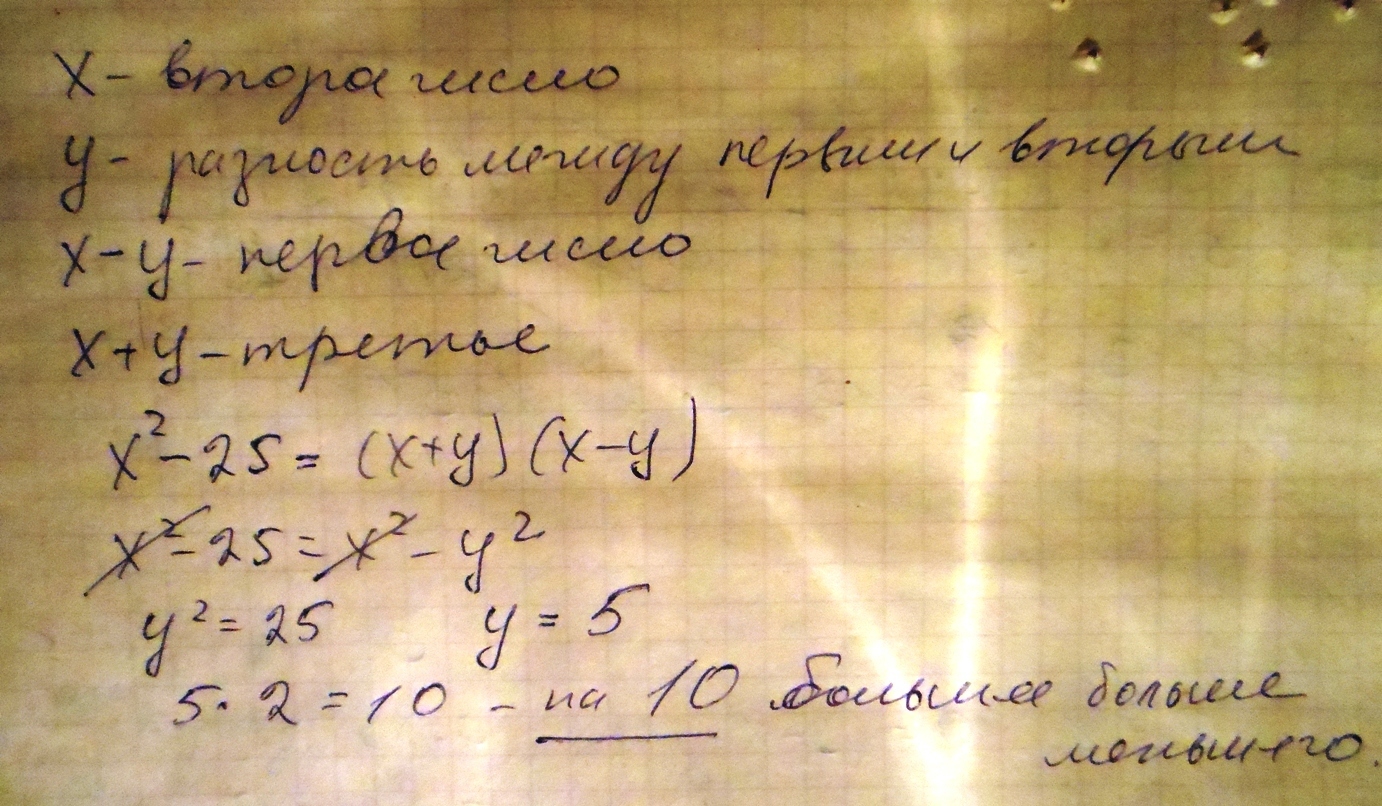 x - втора число
y - разность между первым и вторым
x - y - перва число
x + y - третье
x² - 25 = (x+y)(x-y)
x² - 25 = x² - y²
y² = 25 y = 5
5 · 2 = 10 - на 10 больше больше
меньшего.